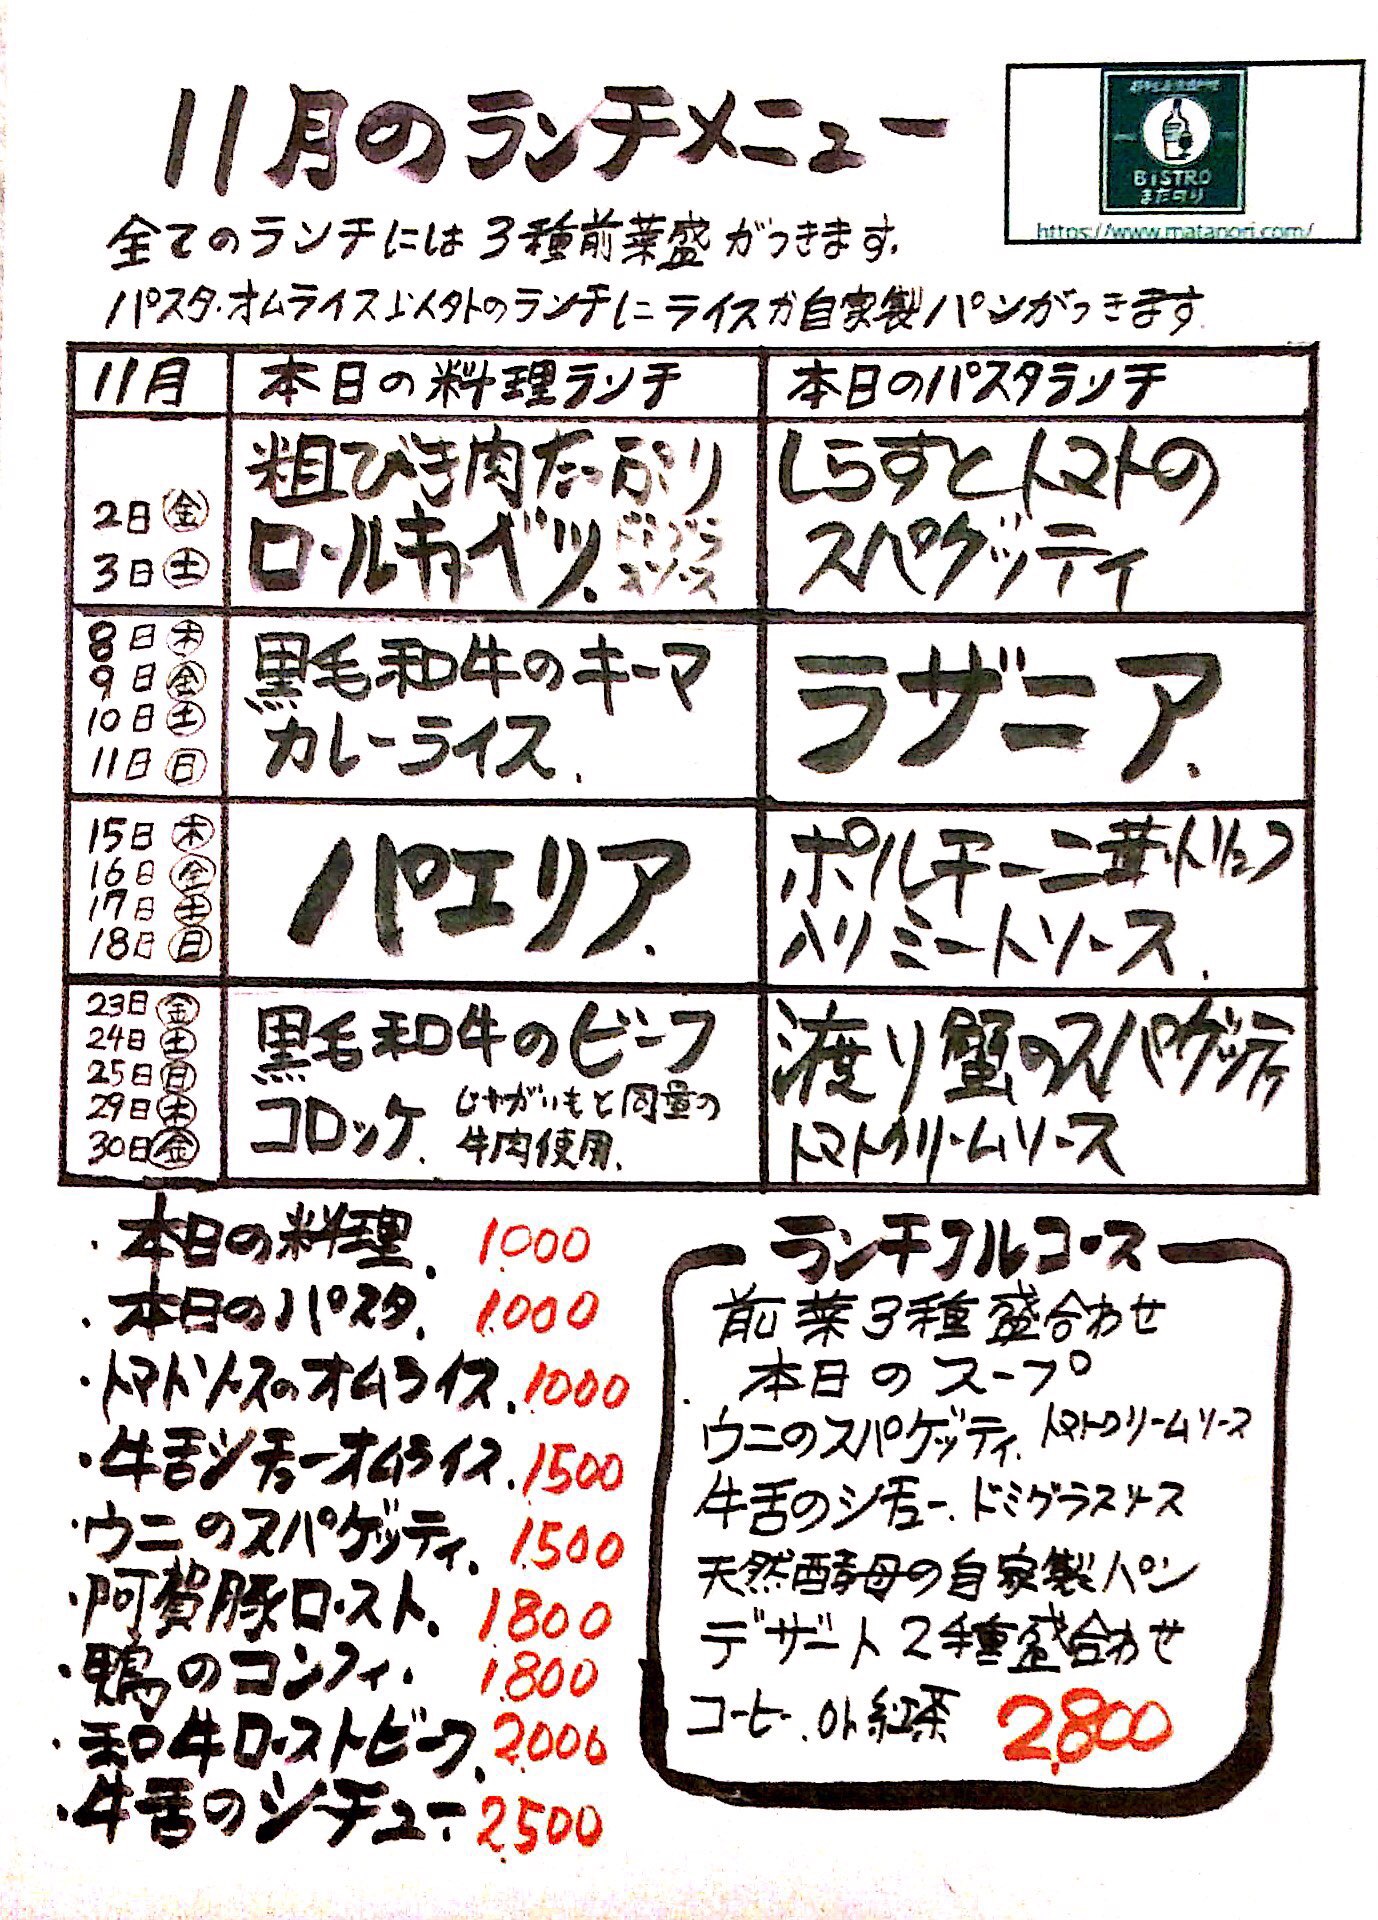 11月のランチメニュー
BiSTRO
またのり
https://www.matanori.com/
全てのランチには3種前菜盛がつきます.
パスタ・オムライス以外のランチにライスか自家製パンがつきます.
11月 本日の料理ランチ 本日のパスタランチ
2日㊎
3日㊏
粗びき肉たっぷり
ロールキャベツ. ドミグラ
スソース
しらすとトマトの
スパゲッティ
8日㊍
9日㊎
10日㊏
11日㊐
黒毛和牛のキーマ
カレーライス.
ラザニア.
15日㊍
16日㊎
17日㊏
18日㊐
パエリア.
ポルチーニ茸・トリュフ
入りミートソース.
23日㊎
24日㊏
25日㊐
29日㊍
30日㊎
黒毛和牛のビーフ
コロッケ. じゃがいもと同量の
牛肉使用.
渡り蟹のスパゲッティ
トマトクリームソース
・本日の料理. 1.000
・本日のパスタ. 1.000
・トマトソースのオムライス. 1000
・牛舌シチューオムライス. 1500
・ウニのスパゲッティ. 1.500
・阿賀豚ロースト. 1.800
・鴨のコンフィ. 1.800
・和牛ローストビーフ. 2.000
・牛舌のシチュー 2.500
ランチフルコース
前菜3種盛合わせ
本日のスープ
ウニのスパゲッティ. トマトクリームソース
牛舌のシチュー. ドミグラスソース
天然酵母の自家製パン
デザート2種盛合わせ
コーヒー. or 紅茶 2,800